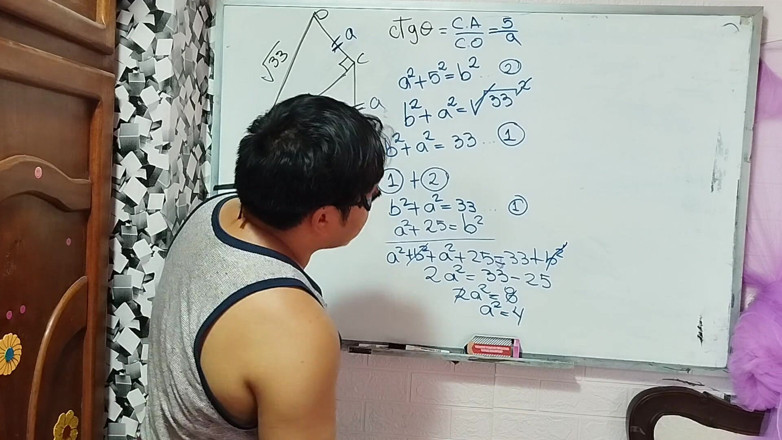 D
a
√33
C
a
Ctgθ = C.A/CO = 5/a
a²+5²=b² ②
b²+a²=√33²
b²+a²=33 ... ①
①+②
b²+a²=33 ... ①
a²+25=b²
a²+b²+a²+25=33+b²
2a²=33-25
2a²=8
a²=4